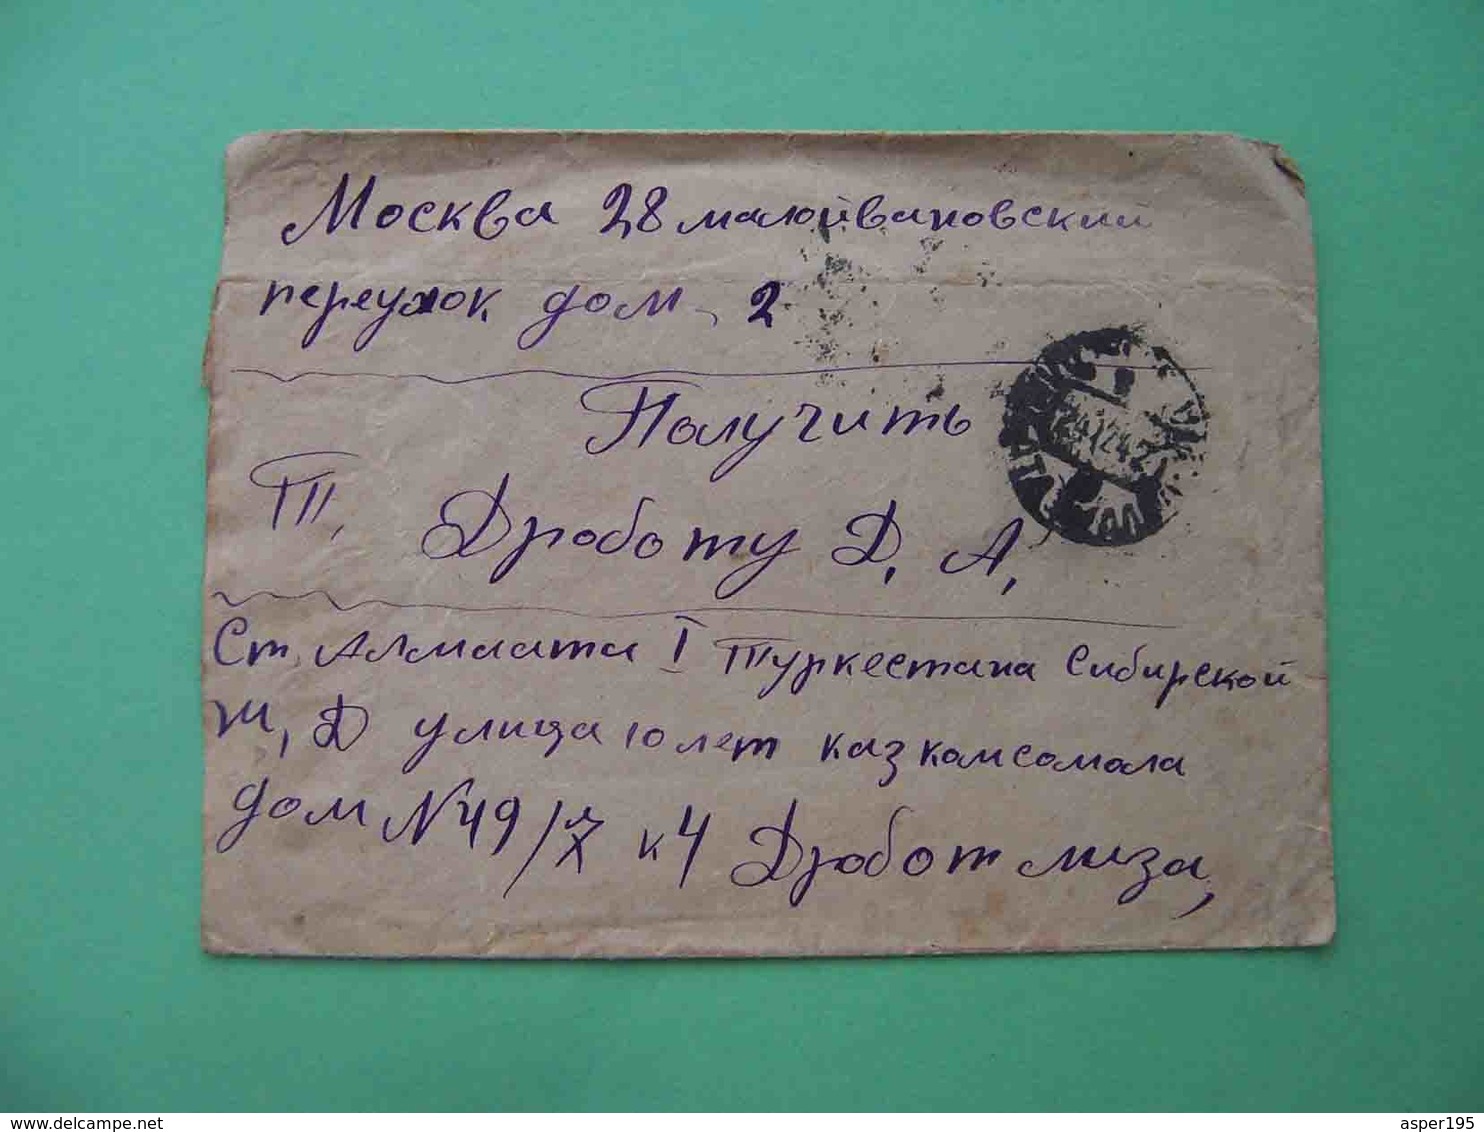 Москва 28 малойвановский
переулок дом 2
Получить
Т.
Дроботу Д, А,
Ст. Алмаата I Туркестана Сибирской
Ж, Д улица 10 лет казкомсомола
дом N 49 к 4 Дробот лиза,
delcampe.net
asper195